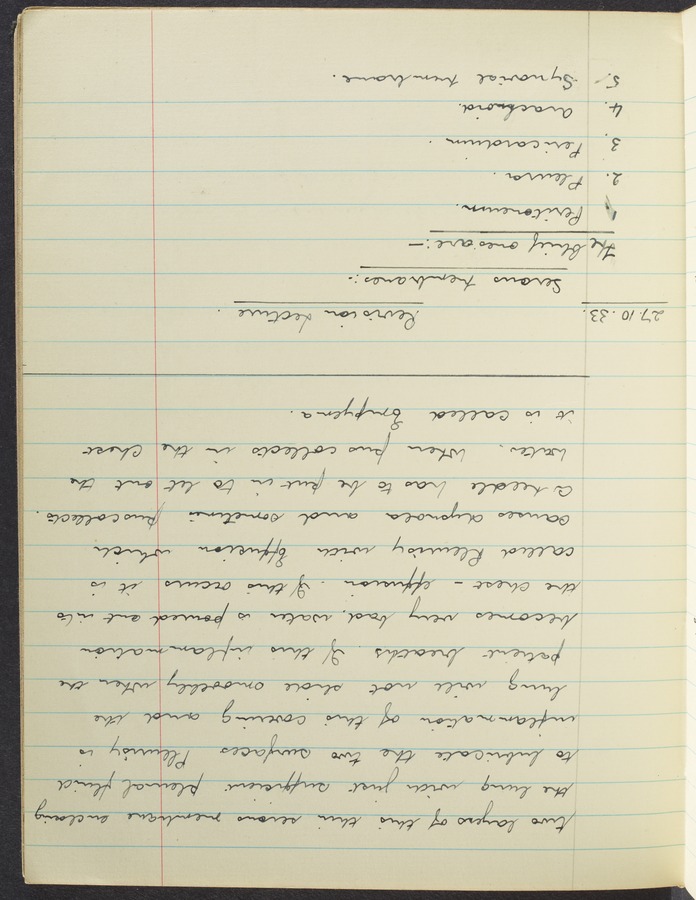 two layers of this thin serous membrane enclosing
the lung with just sufficient pleural fluid
to lubricate the two surfaces Pleurisy is
inflammation of this covering and the
lung will not slide smoothly when the
patient breaths. If this inflammation
becomes very bad, water is poured out into
the chest - effusion. If this occurs it is
called Pleurisy with Effusion which
causes dyspnoea and sometimes pus collects.
a needle has to be put in to let out the
water. When pus collects in the chest
it is called Empyema.
27.10.33. Revision Lecture.
Serous Membranes:-
The Chief ones are:-
1. Peritoneum.
2. Pleura.
3. Pericardium.
4. Arachnoid.
5. Synovial membrane.